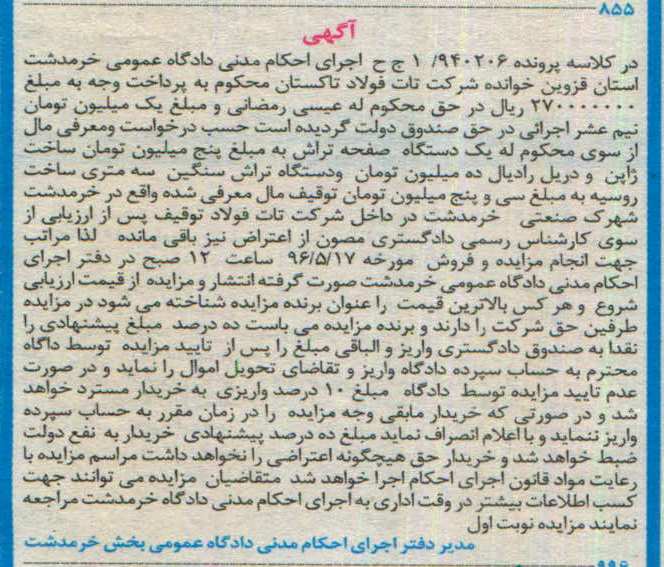 ۸۵۵
آگهی
در کلاسه پرونده ۹۴۰۲۰۶/ ۱ ج ح اجرای احکام مدنی دادگاه عمومی خرمدشت
استان قزوین خوانده شرکت تات فولاد تاکستان محکوم به پرداخت وجه به مبلغ
۲۷۰۰۰۰۰۰۰ ریال در حق محکوم له عیسی رمضانی و مبلغ یک میلیون تومان
نیم عشر اجرائی در حق صندوق دولت گردیده است حسب درخواست ومعرفی مال
از سوی محکوم له یک دستگاه صفحه تراش به مبلغ پنج میلیون تومان ساخت
ژاپن و دریل رادیال ده میلیون تومان ودستگاه تراش سنگین سه متری ساخت
روسیه به مبلغ سی و پنج میلیون تومان توقیف مال معرفی شده واقع در خرمدشت
شهرک صنعتی خرمدشت در داخل شرکت تات فولاد توقیف پس از ارزیابی از
سوی کارشناس رسمی دادگستری مصون از اعتراض نیز باقی مانده لذا مراتب
جهت انجام مزایده و فروش مورخه ۹۶/۵/۱۷ ساعت ۱۲ صبح در دفتر اجرای
احکام مدنی دادگاه عمومی خرمدشت صورت گرفته انتشار و مزایده از قیمت ارزیابی
شروع و هر کس بالاترین قیمت را عنوان برنده مزایده شناخته می شود در مزایده
طرفین حق شرکت را دارند و برنده مزایده می باست ده درصد مبلغ پیشنهادی را
نقدا به صندوق دادگستری واریز و الباقی مبلغ را پس از تایید مزایده توسط داگاه
محترم به حساب سپرده دادگاه واریز و تقاضای تحویل اموال را نماید و در صورت
عدم تایید مزایده توسط دادگاه مبلغ ۱۰ درصد واریزی به خریدار مسترد خواهد
شد و در صورتی که خریدار مابقی وجه مزایده را در زمان مقرر به حساب سپرده
واریز ننماید و با اعلام انصراف نماید مبلغ ده درصد پیشنهادی خریدار به نفع دولت
ضبط خواهد شد و خریدار حق هیچگونه اعتراضی را نخواهد داشت مراسم مزایده با
رعایت مواد قانون اجرای احکام اجرا خواهد شد متقاضیان مزایده می توانند جهت
کسب اطلاعات بیشتر در وقت اداری به اجرای احکام مدنی دادگاه خرمدشت مراجعه
نمایند مزایده نوبت اول
مدیر دفتر اجرای احکام مدنی دادگاه عمومی بخش خرمدشت